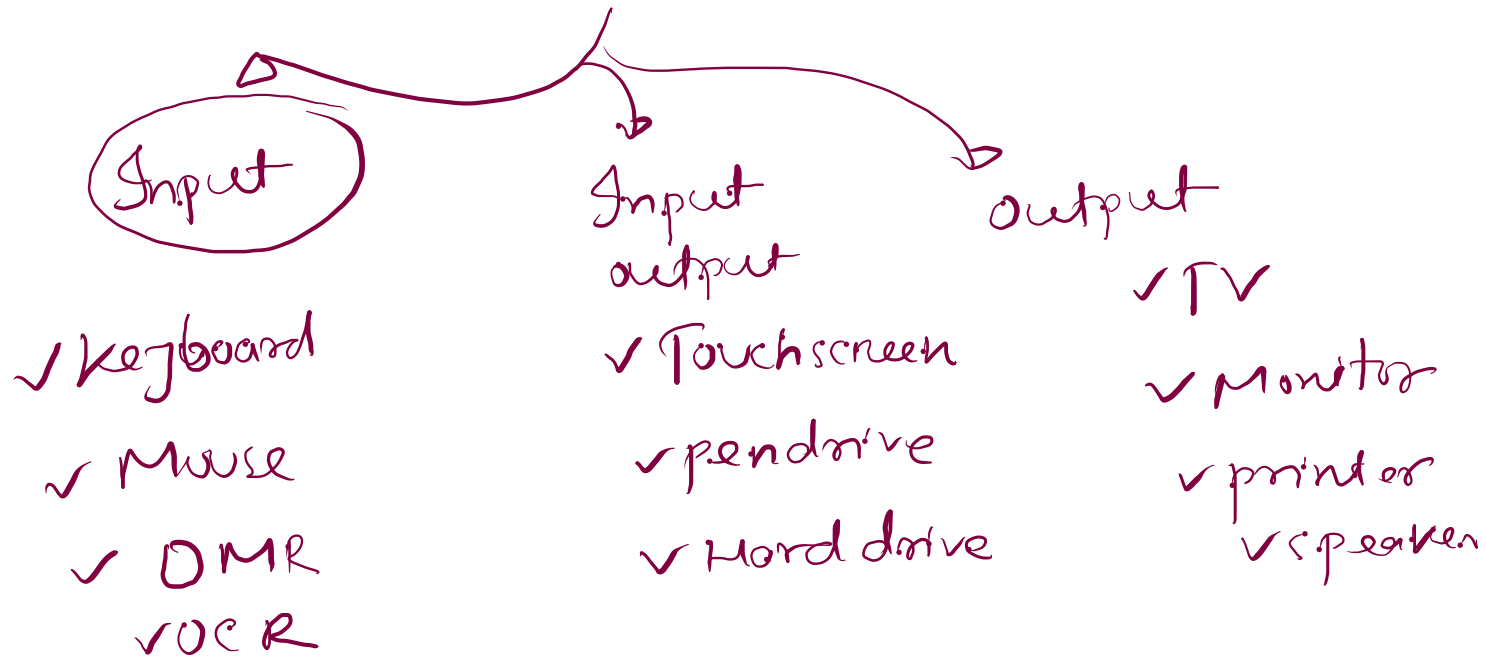 Input
Keyboard
Mouse
OMR
OCR
Input
output
Touchscreen
pendrive
Hard drive
output
TV
Monitor
printer
speaker